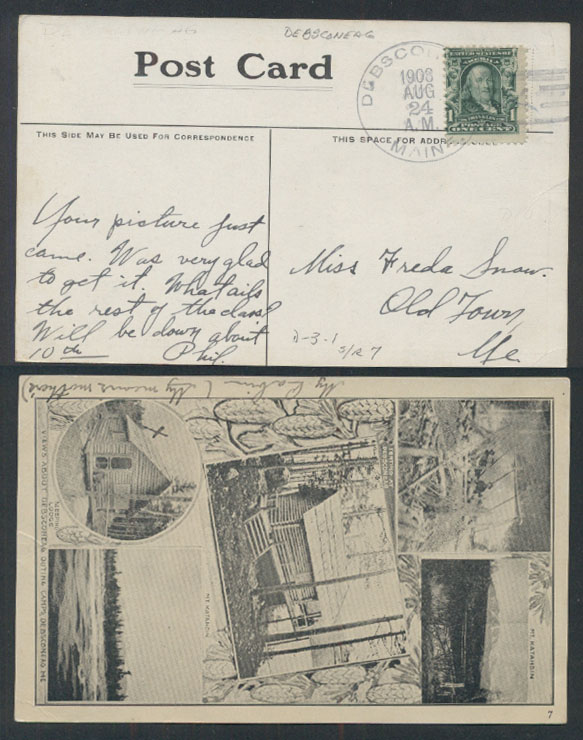 DEBSCONEAG
Post Card
DEBSCON
1908
AUG
24
A.M.
MAIN
UNITED STATES OF AMERICA
1 1
ONE CENT
THIS SIDE MAY BE USED FOR CORRESPONDENCE
THIS SPACE FOR ADDR
Your picture just
came. Was very glad
to get it. What ails
the rest of the class
Will be down about
10th Phil.
Miss Freda Snow.
Old Town,
Me.
D-3-1
S/R 7
My Cabin (My means most here)
VIEWS ABOUT DEBSCONEAG OUTING CAMPS DEBSCONEAG ME.
LODGE
MT KATAHDIN
MT. KATAHDIN
7